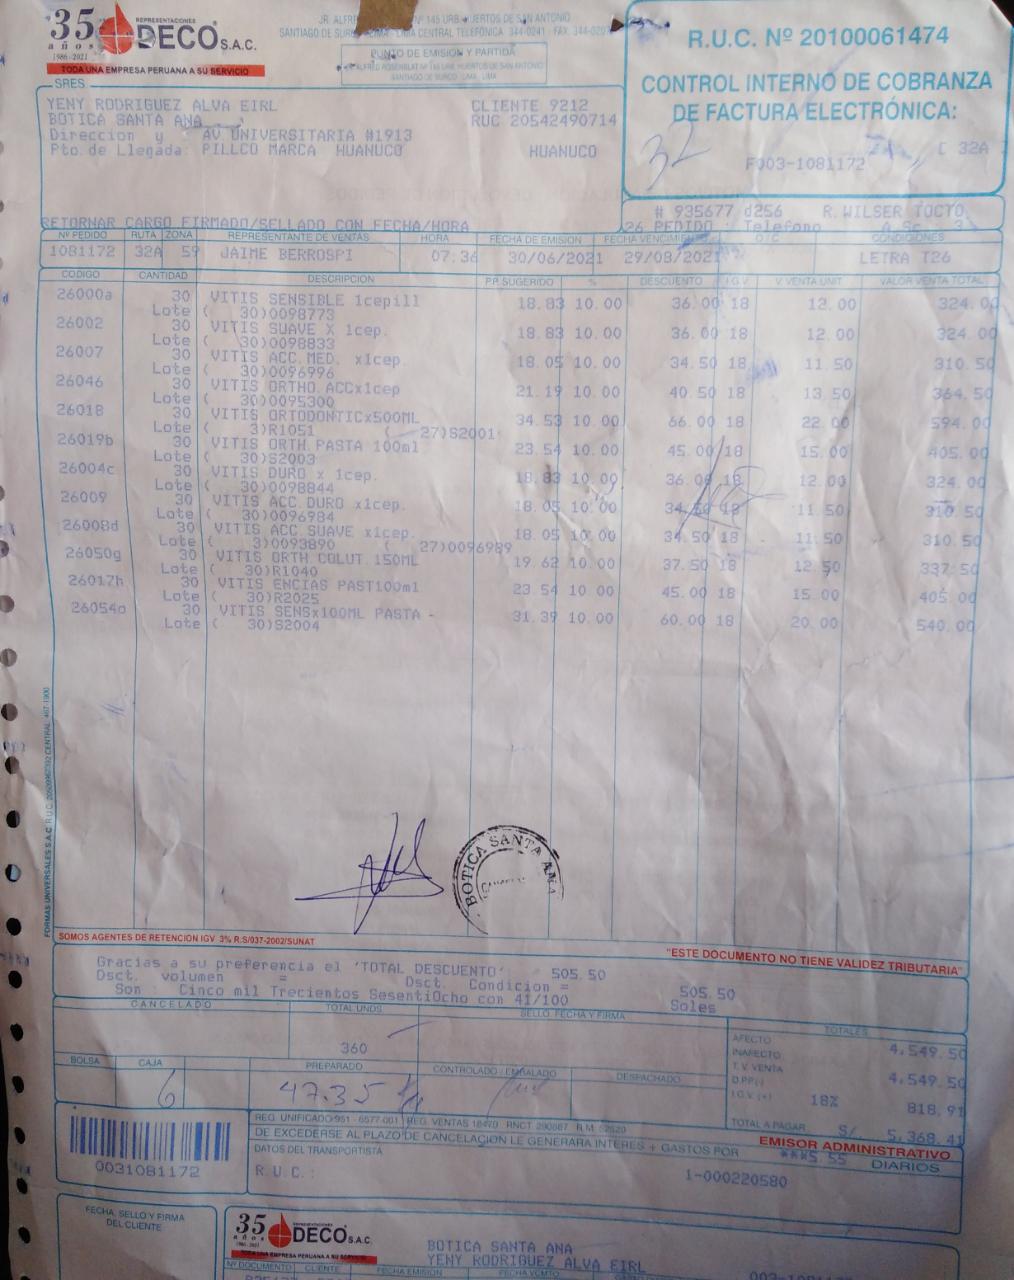 35 años
1986-2021
REPRESENTACIONES
DECO S.A.C.
TODA UNA EMPRESA PERUANA A SU SERVICIO
Nº 145 URB. HUERTOS DE SAN ANTONIO
SANTIAGO DE SURCO - LIMA CENTRAL TELEFONICA 344-0241 - FAX. 344-0297
PUNTO DE EMISION Y PARTIDA
SANTIAGO DE SURCO - LIMA - LIMA
R.U.C. Nº 20100061474
CONTROL INTERNO DE COBRANZA
DE FACTURA ELECTRÓNICA:
32
[ 32A
F003-1081172
SRES.
YENY RODRIGUEZ ALVA EIRL
BOTICA SANTA ANA
Direccion y AV UNIVERSITARIA #1913
Pto.de Llegada: PILLCO MARCA HUANUCO
CLIENTE 9212
RUC 20542490714
HUANUCO
# 935677 d256 R.WILSER TOCTO
RETORNAR CARGO FIRMADO/SELLADO CON FECHA/HORA
26 PEDIDO : Telefono
Nº PEDIDO RUTA ZONA REPRESENTANTE DE VENTAS HORA FECHA DE EMISION FECHA VENCIMIENTO O/C CONDICIONES
1081172 32A 59 JAIME BERROSPI 07:36 30/06/2021 29/08/2021 LETRA T26
CODIGO CANTIDAD DESCRIPCION P.P. SUGERIDO % DESCUENTO I.G.V. V.VENTA UNIT VALOR VENTA TOTAL
26000a 30 VITIS SENSIBLE 1cepill 18.83 10.00 36.00 18 12.00 324.00
Lote ( 30)0098773
26002 30 VITIS SUAVE X 1cep. 18.83 10.00 36.00 18 12.00 324.00
Lote ( 30)0098833
26007 30 VITIS ACC.MED. x1cep 18.05 10.00 34.50 18 11.50 310.50
Lote ( 30)0096996
26046 30 VITIS ORTHO.ACCx1cep 21.19 10.00 40.50 18 13.50 364.50
Lote ( 30)0095300
26018 30 VITIS ORTODONTICx500ML 34.53 10.00 66.00 18 22.00 594.00
Lote ( 3)R1051 ( 27)S2001
26019b 30 VITIS ORTH.PASTA 100ml 23.54 10.00 45.00 18 15.00 405.00
Lote ( 30)S2003
26004c 30 VITIS DURO x 1cep. 18.83 10.00 36.00 18 12.00 324.00
Lote ( 30)0098844
26009 30 VITIS ACC.DURO x1cep. 18.05 10.00 34.50 18 11.50 310.50
Lote ( 30)0096984
26008d 30 VITIS ACC.SUAVE x1cep. 18.05 10.00 34.50 18 11.50 310.50
Lote ( 3)0093890 ( 27)0096989
26050g 30 VITIS ORTH COLUT.150ML 19.62 10.00 37.50 18 12.50 337.50
Lote ( 30)R1040
26017h 30 VITIS ENCIAS PAST100ml 23.54 10.00 45.00 18 15.00 405.00
Lote ( 30)R2025
26054o 30 VITIS SENSx100ML PASTA - 31.39 10.00 60.00 18 20.00 540.00
Lote ( 30)S2004
BOTICA SANTA ANA
SOMOS AGENTES DE RETENCION IGV 3% R.S/037-2002/SUNAT
"ESTE DOCUMENTO NO TIENE VALIDEZ TRIBUTARIA"
Gracias a su preferencia el 'TOTAL DESCUENTO': 505.50
Dsct. volumen = Dsct. Condicion = 505.50
Son : Cinco mil Trecientos SesentiOcho con 41/100 Soles
CANCELADO TOTAL UNDS SELLO, FECHA Y FIRMA TOTALES
360
AFECTO 4,549.50
INAFECTO
T.V. VENTA 4,549.50
D.PP(-)
I.G.V. (+) 18% 818.91
TOTAL A PAGAR S/. 5,368.41
BOLSA CAJA PREPARADO CONTROLADO / EMBALADO DESPACHADO
6 47.35
REG. UNIFICADO 951 - 6577-001 REG. VENTAS 18470
EMISOR ADMINISTRATIVO
DE EXCEDERSE AL PLAZO DE CANCELACION LE GENERARA INTERES + GASTOS POR ***5.55 DIARIOS
DATOS DEL TRANSPORTISTA
R.U.C.: 1-000220580
0031081172
FECHA, SELLO Y FIRMA
DEL CLIENTE
35 años
1986-2021
REPRESENTACIONES
DECO S.A.C.
TODA UNA EMPRESA PERUANA A SU SERVICIO
BOTICA SANTA ANA
YENY RODRIGUEZ ALVA EIRL
Nº DOCUMENTO CLIENTE FECHA EMISION FECHA VCMTO